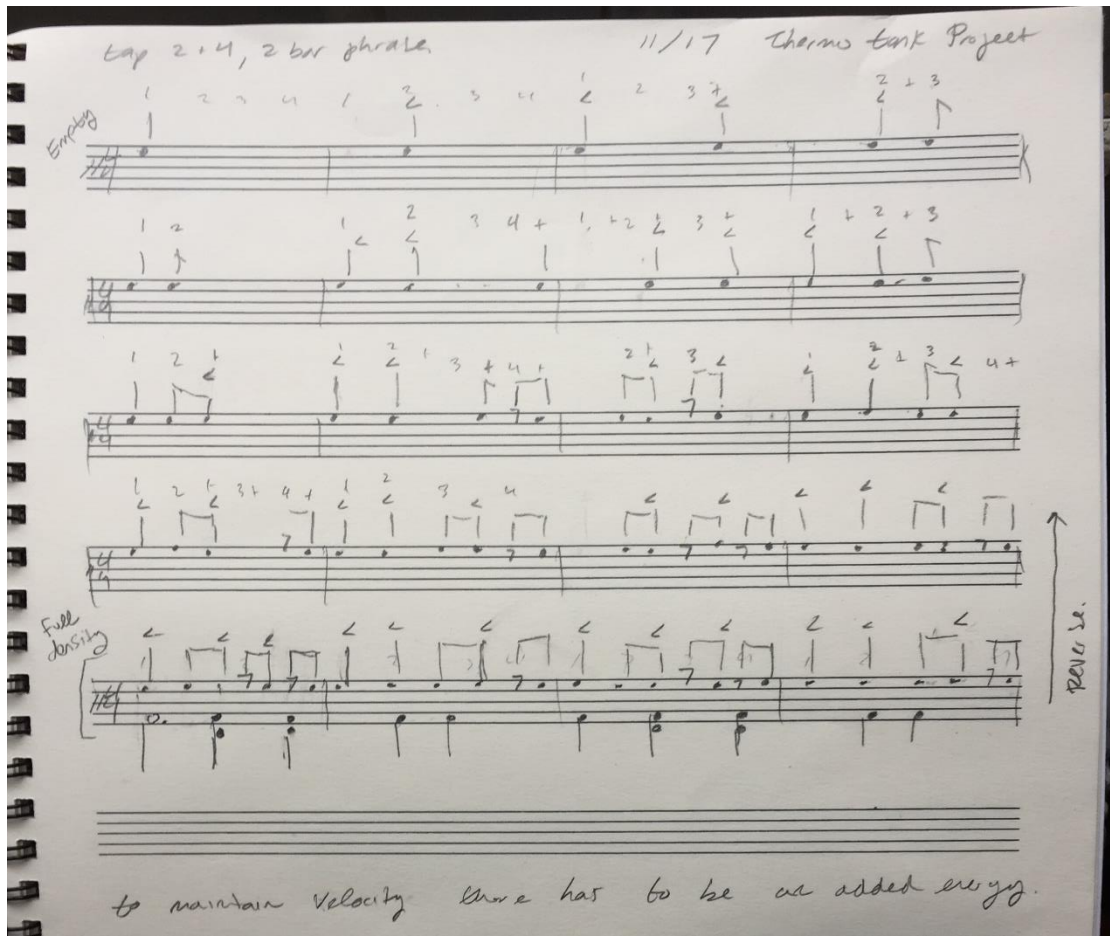 tap 2+4, 2 bar phrase. 11/17 Thermo tank Project
1 2 3 4 1 2 3 4 1 2 3 + 2 + 3
Empty
4/4
1 2 1 2 3 4 + 1 + 2 + 3 + 1 + 2 + 3
4/4
1 2 + 1 2 + 3 + 4 + 2 + 3 1 2 + 3 4 +
4/4
1 2 + 3+ 4 + 1 2 3 4
4/4
Full density
4/4
Reverse.
to maintain velocity there has to be an added energy.